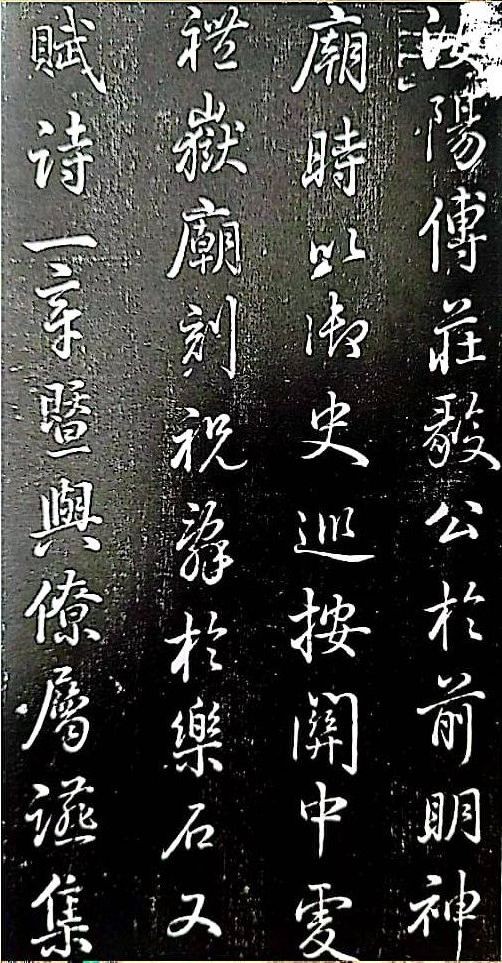 汝陽傅莊毅公於前明神
廟時以御史巡按關中虔
禮嶽廟刻祝辭於樂石又
賦詩一章暨與僚屬讌集